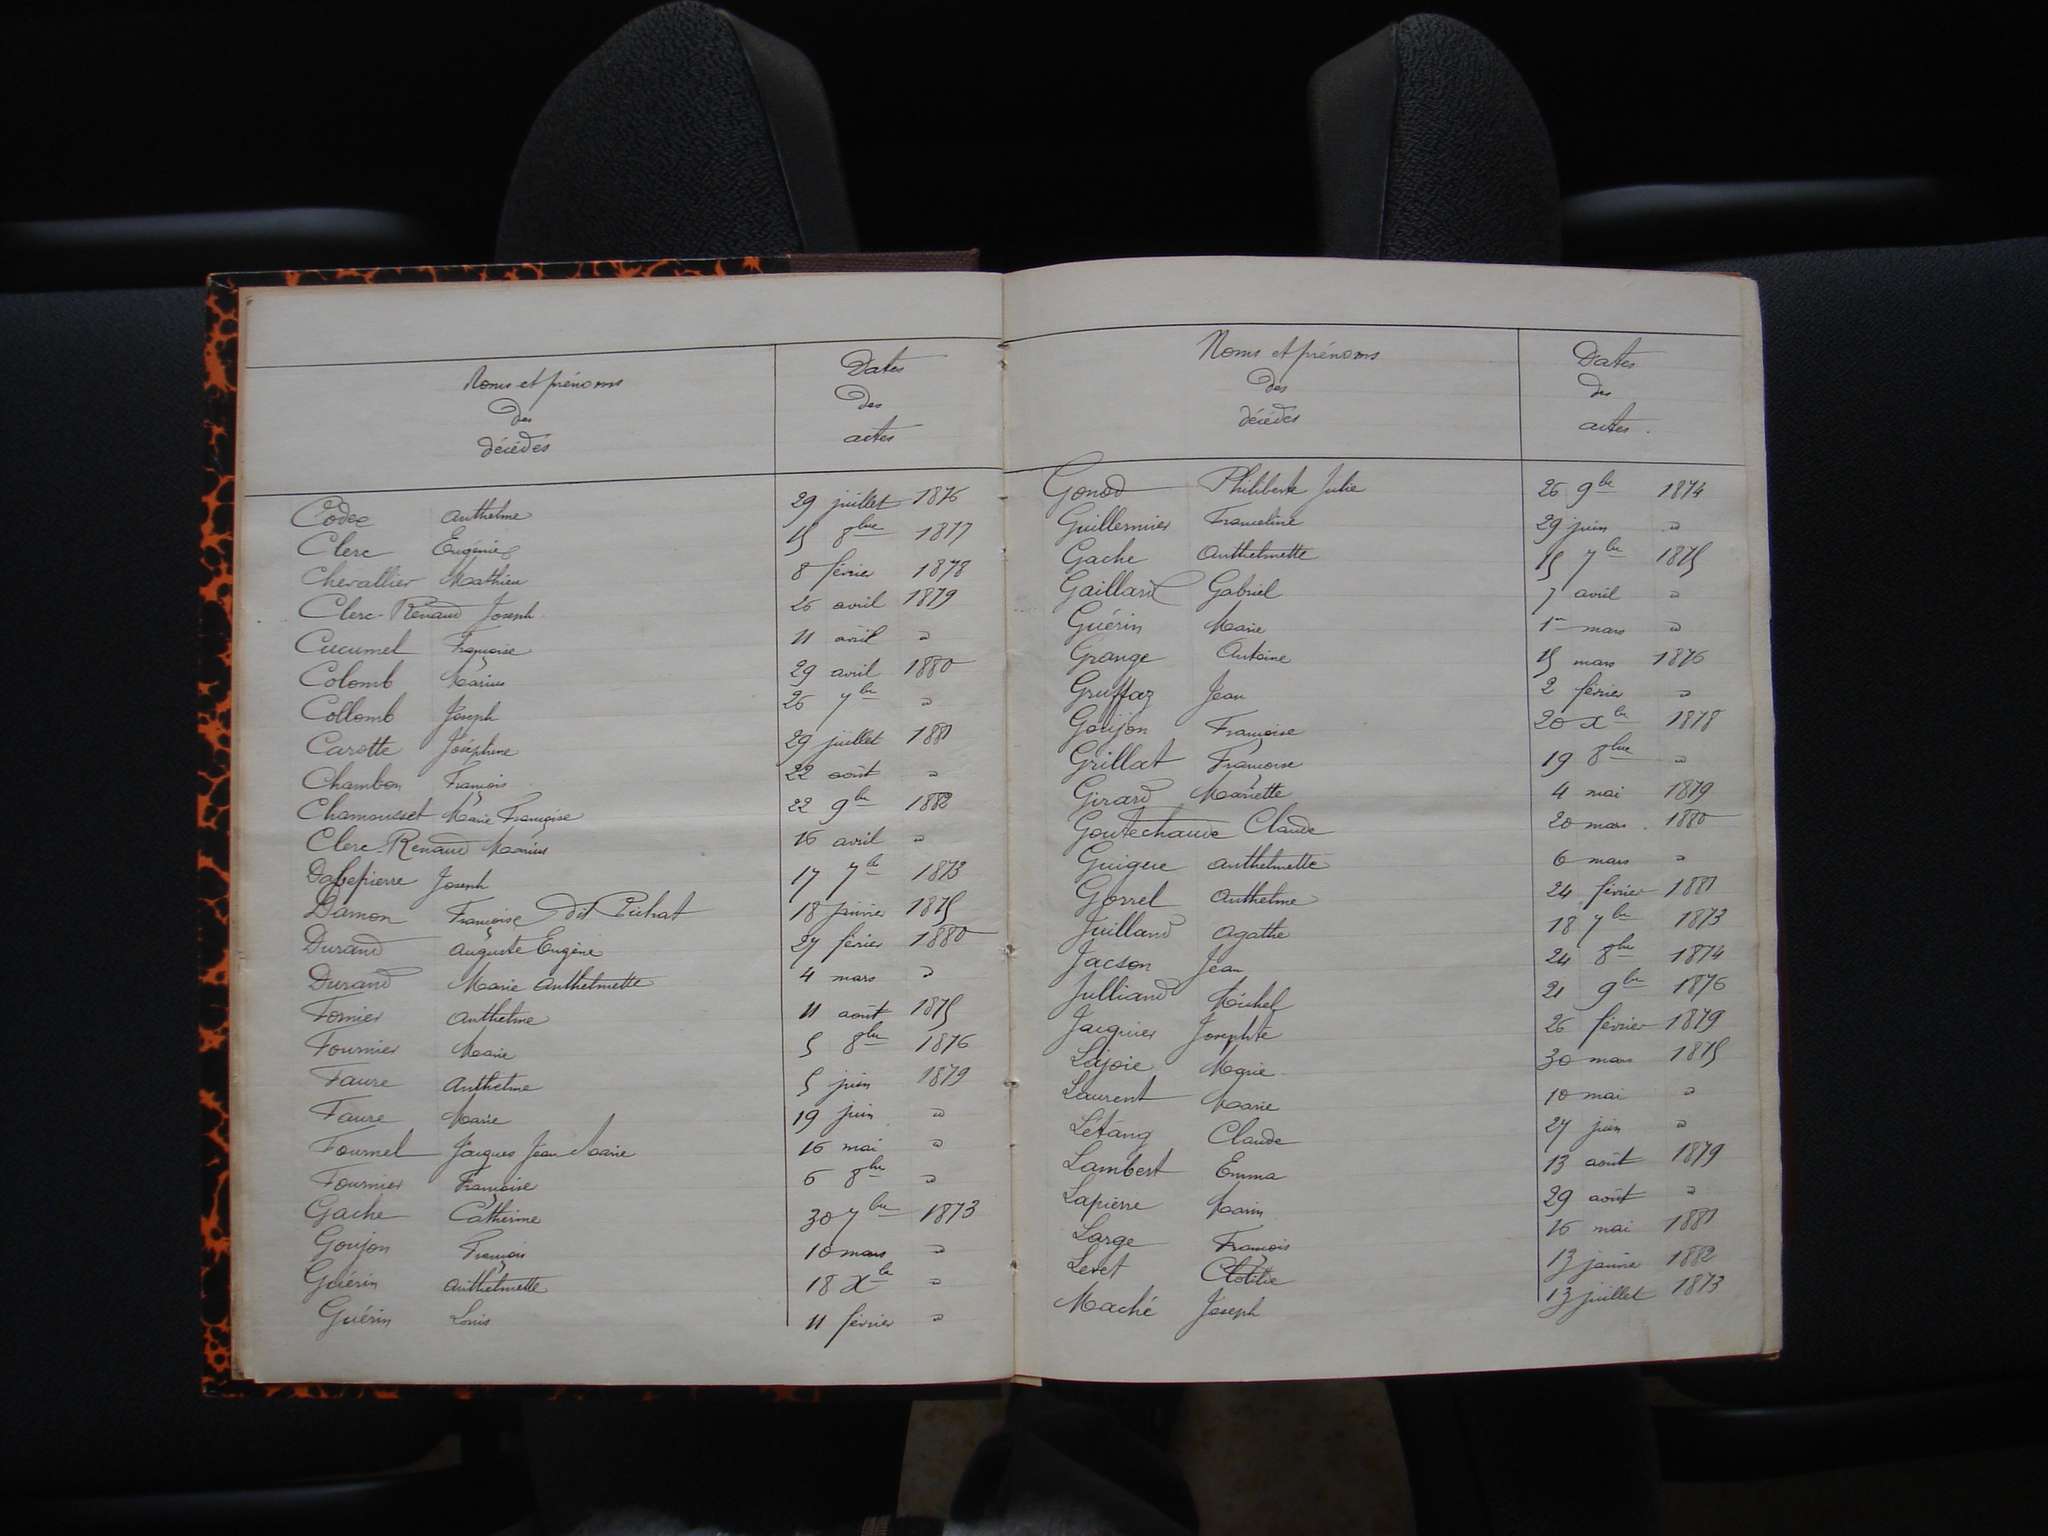 Noms et prénoms
des
décédés
Dates
des
actes
Codex Anthelme 29 juillet 1876
Clerc Eugénie 15 8bre 1877
Chevallier Mathieu 8 février 1878
Clerc-Renaud Joseph 26 avril 1879
Cucumel Françoise 11 avril "
Colomb Marius 29 avril 1880
Collomb Joseph 26 7bre "
Carotte Joséphine 29 juillet 1881
Chambon François 22 août "
Chamousset Marie Françoise 22 9bre 1882
Clerc-Renaud Marius 16 avril "
Joseph 17 7bre 1873
Damon Françoise dit Pichat 18 janvier 1875
Durand Auguste Eugène 27 février 1880
Durand Marie Anthelmette 4 mars "
Fornier Anthelme 11 août 1875
Fournier Marie 5 8bre 1876
Faure Anthelme 5 juin 1879
Faure Marie 19 juin "
Fournel Jacques Jean Marie 16 mai "
Fournier Françoise 6 8bre "
Gache Catherine 30 7bre 1873
Goujon François 10 mars "
Guérin Anthelmette 18 Xbre "
Guérin Louis 11 février "
Noms et prénoms
des
décédés
Dates
des
actes.
Gonod Philiberte Julie 26 9bre 1874
Guillermier Franceline 29 juin "
Gache Anthelmette 15 7bre 1875
Gaillard Gabriel 7 avril "
Guérin Marie 1er mars "
Grange Antoine 15 mars 1876
Gruffaz Jean 2 février "
Goujon Françoise 20 Xbre 1878
Grillat Françoise 19 8bre "
Girard Mariette 4 mai 1879
Goutechaude Claude 20 mars 1880
Guigue Anthelmette 6 mars "
Gorrel Anthelme 24 février 1881
Juilland Agathe 18 7bre 1873
Jacson Jean 24 8bre 1874
Julliand Michel 21 9bre 1876
Jacquier Josephte 26 février 1879
Lajoie Marie 30 mars 1875
Laurent Marie 10 mai "
Létang Claude 27 juin "
Lambert Emma 13 août 1879
Lapierre Marin 29 août "
Large François 16 mai 1881
Leret Clotilde 13 janvier 1882
Maché Joseph 13 juillet 1873